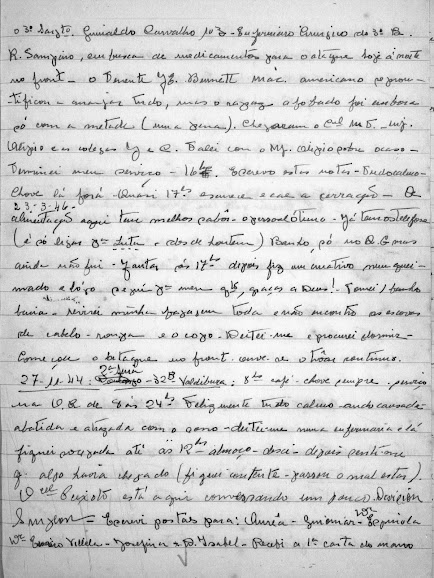 o 3º Sargto. Guinaldo Carvalho nº 3 - Enfermeiro Cirurgico do 3º B.
R. Sampaio, em busca de medicamentos para o ataque hoje á noite
no front - o Tenente Burnett Mac. americano
tificou arranjar tudo, mas o rapaz afobado foi embora
só com a metade (uma pena). Chegaram o Cel M. E. Mj.
Olizio e as colegas e O. Falei com o Mj. Olizio sobre o caso -
Terminei meu serviço - 16 hs. Escrevo estas notas - Tudo calmo -
Chove lá fóra - Quasi 17 hs escurece e cae a cerração - A
23-3-46-
alimentação aqui tem melhor sabôr - o pessoal ótimo - Já temos telefone
(é só ligar desde hontem) Banho, só no Q. G. mas
ainda não fui - Jantar ás 17 hs depois fiz um curativo num quei-
mado e logo segui meu qto, graças a Deus! - Tomei banho
bacia - revirei minha bagagem toda e não encontro as escovas
de cabelo - roupa e o copo - Deitei-me e procurei dormir -
Começou o ataque no front. ouve-se o troar continuo.
27-11-44. 2ª feira - 32º Valdibura: 8 hs café - chove sempre. serviço
na O. R. de 8 as 24 hs. Felizmente tudo calmo - ando cansada
abatida e atrazada com o sono - deitei-me numa enfermaria e lá
fiquei socegada até ás 12 hs - almoço - desci - depois senti-me
q. algo havia chegado (fiquei contente - passou o mal estar).
O Cel Peixoto está aqui conversando um pouco.
- Escrevi postas para: Auréa - Guiomar - Wª
Wª Villela - Josefina e D. Isabel - Recebi a 1ª carta do mano